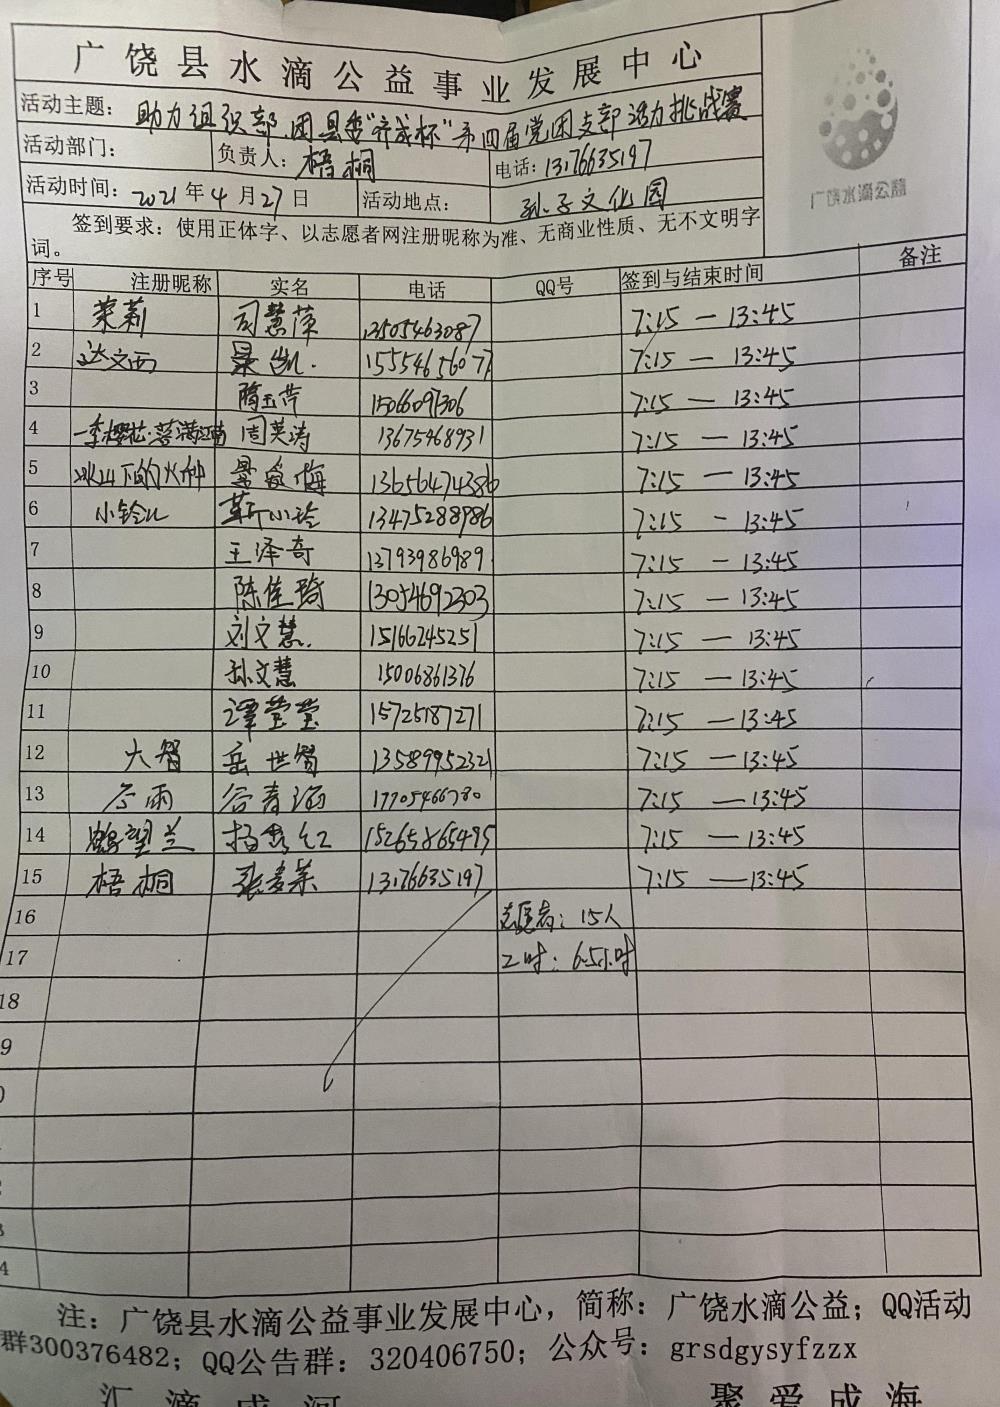 广饶县水滴公益事业发展中心
广饶水滴公益
活动主题： 助力组织部、团县委"乔成杯"第四届党团支部活力挑战赛
活动部门： 负责人：梧桐 电话：13176635197
活动时间：2021年4月27日 活动地点： 孙子文化园
签到要求：使用正体字、以志愿者网注册昵称为准、无商业性质、无不文明字
词。
序号 注册昵称 实名 电话 QQ号 签到与结束时间 备注
1 茉莉 司慧萍 13505463087 7:15 — 13:45
2 达文西 景凯 15554656077 7:15 — 13:45
3 隋玉萍 15066097306 7:15 — 13:45
4 一季樱花·落满江南 周英涛 13675468931 7:15 — 13:45
5 冰山下的火种 景爱梅 13656474386 7:15 — 13:45
6 小铃儿 靳小玲 13475288986 7:15 - 13:45
7 王泽奇 13793986989 7:15 — 13:45
8 陈佳琦 13054692303 7:15 — 13:45
9 刘文慧 15166245251 7:15 — 13:45
10 孙文慧 15006861376 7:15 — 13:45
11 谭莹莹 15725187271 7:15 — 13:45
12 大智 岳世智 13589952321 7:15 — 13:45
13 谷雨 谷春海 17705466780 7:15 — 13:45
14 鹤望兰 杨秀红 15265865495 7:15 — 13:45
15 梧桐 张老莱 13176635197 7:15 — 13:45
16 志愿者：15人
17 工时：6.5小时
18
9
0
3
4
注：广饶县水滴公益事业发展中心，简称：广饶水滴公益；QQ活动
群300376482；QQ公告群：320406750；公众号：grsdgysyfzzx
汇滴成河 聚爱成海